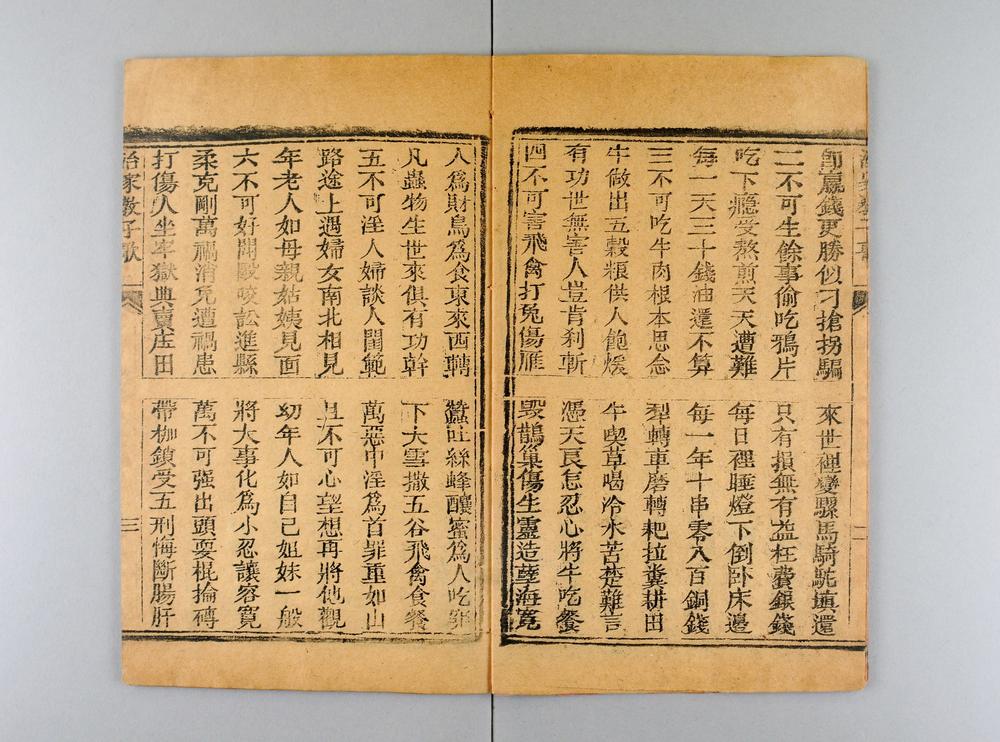 即贏錢更勝似刁搶拐騙　來世裡變騾馬騎駝填還
二不可生餘事偷吃鴉片　只有損無有益枉費銀錢
吃下癮受熬煎天天遭難　每日裡睡燈下倒卧床邊
每一天三十錢油還不算　每一年十串零八百銅錢
三不可吃牛肉根本思念　犁轉車磨轉耙拉糞耕田
牛做出五穀粮供人飽煖　牛喫草喝冷水苦楚難言
有功世無害人豈肯刹斬　憑天良怎忍心將牛吃餐
四不可害飛禽打兎傷雁　毀鵲巢傷生靈造孽海寬
二
人為財鳥為食東來西轉　蠶吐絲蜂釀蜜為人吃穿
凡蟲物生世來俱有功幹　下大雪撒五谷飛禽食餐
五不可淫人婦談人閨範　萬惡中淫為首罪重如山
路途上遇婦女南北相見　且不可心望想再將他觀
年老人如母親姑姨見面　幼年人如自己姐妹一般
六不可好鬧毆咬訟進縣　將大事化為小忍讓容寬
柔克剛萬禍消免遭禍患　萬不可强出頭耍棍掄磚
打傷人坐牢獄典賣庄田　帶枷鎖受五刑悔斷腸肝
治家教子歌
三